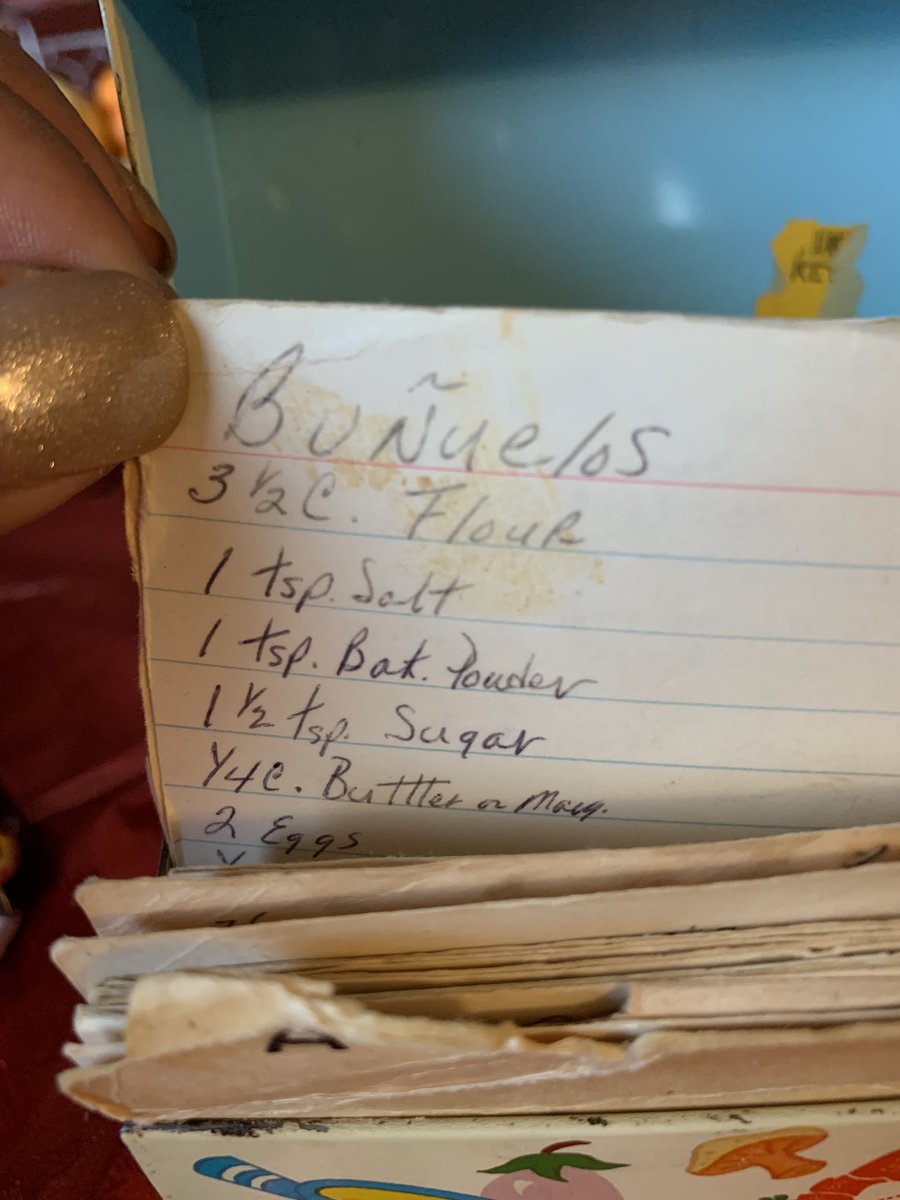 BuÑuelos
3 1/2 C. Flour
1 tsp. Salt
1 tsp. Bak. Powder
1 1/2 tsp. Sugar
1/4 C. Buttter or Marg.
2 Eggs
KEY